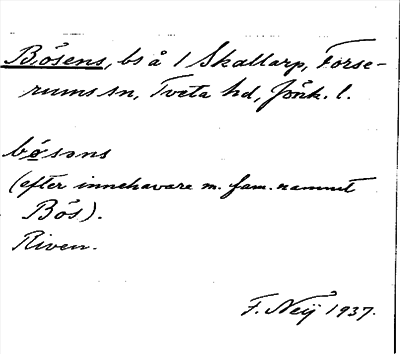 Bösens, bs å 1 Skallarp, Forse-
rums sn, Tveta hd, Jönk. l.
bø̀sɘns
(efter innehavare m. fam.namnet
Bös).
Riven.
F. Neij 1937.